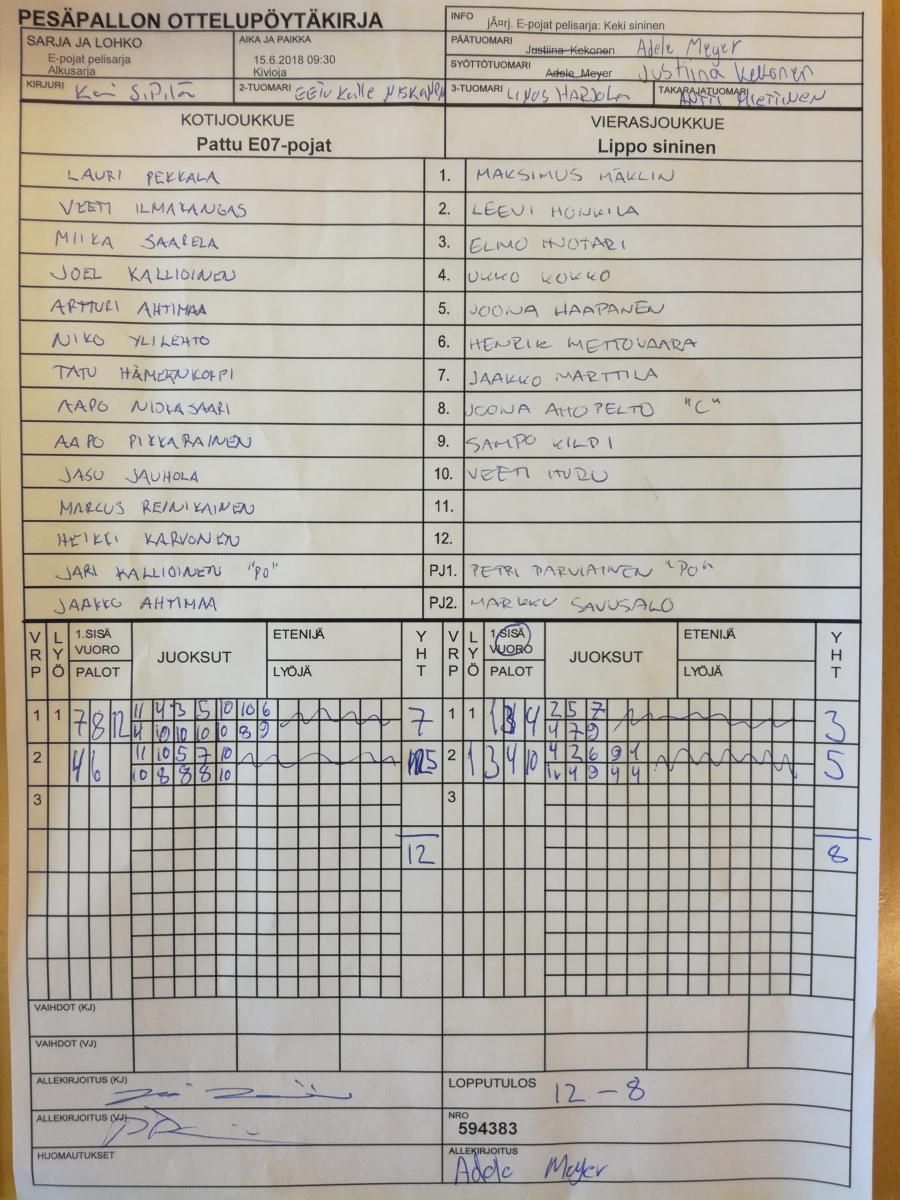 PESÄPALLON OTTELUPÖYTÄKIRJA
INFO
jÃ¤rj. E-pojat pelisarja: Keki sininen
SARJA JA LOHKO
E-pojat pelisarja
Alkusarja
AIKA JA PAIKKA
15.6.2018 09:30
Kivioja
PÄÄTUOMARI Justiina Kekonen Adele Meyer
SYÖTTÖTUOMARI Adele Meyer Justiina Kekonen
KIRJURI SIPILÄ
2-TUOMARI KALLE NISKANEN
3-TUOMARI LINUS HARJOLA
TAKARAJATUOMARI ANTTI MIETTINEN
KOTIJOUKKUE
Pattu E07-pojat
VIERASJOUKKUE
Lippo sininen
LAURI PEKKALA 1. MAKSIMUS MÄKLIN
VEETI ILMAKANGAS 2. LEEVI HONKILA
MIIKA SAARELA 3. ELMO HUOTARI
JOEL KALLIOINEN 4. UKKO KOKKO
ARTTURI AHTIMAA 5. JOONA HAAPANEN
NIKO YLILEHTO 6. HENRIK METTOVAARA
TATU HÄMEENKORPI 7. JAAKKO MARTTILA
AAPO NISKASAARI 8. JOONA AHOPELTO "C"
AAPO PIKKARAINEN 9. SAMPO KILPI
JASU JAUHOLA 10. VEETI HURU
MARCUS REINIKAINEN 11.
HEIKKI KARVONEN 12.
JARI KALLIOINEN "PO" PJ1. PETRI PARVIAINEN "PO"
JAAKKO AHTIMAA PJ2. MARKKU SAVUSALO
VRP LYÖ 1.SISÄ VUORO PALOT JUOKSUT ETENIJÄ LYÖJÄ YHT VRP LYÖ 1.SISÄ VUORO PALOT JUOKSUT ETENIJÄ LYÖJÄ YHT
1 1 7 8 12 11 4 3 5 10 10 6 7 1 1 4 2 5 7 3
4 10 10 10 8 8 9 4 7 9
2 4 6 11 10 5 7 10 5 2 1 3 4 10 4 2 6 9 1 5
10 8 8 8 10 4 9 4 4
3 3
12 8
VAIHDOT (KJ)
VAIHDOT (VJ)
ALLEKIRJOITUS (KJ)
LOPPUTULOS 12 – 8
ALLEKIRJOITUS (VJ)
NRO
594383
HUOMAUTUKSET
ALLEKIRJOITUS
Adele Meyer